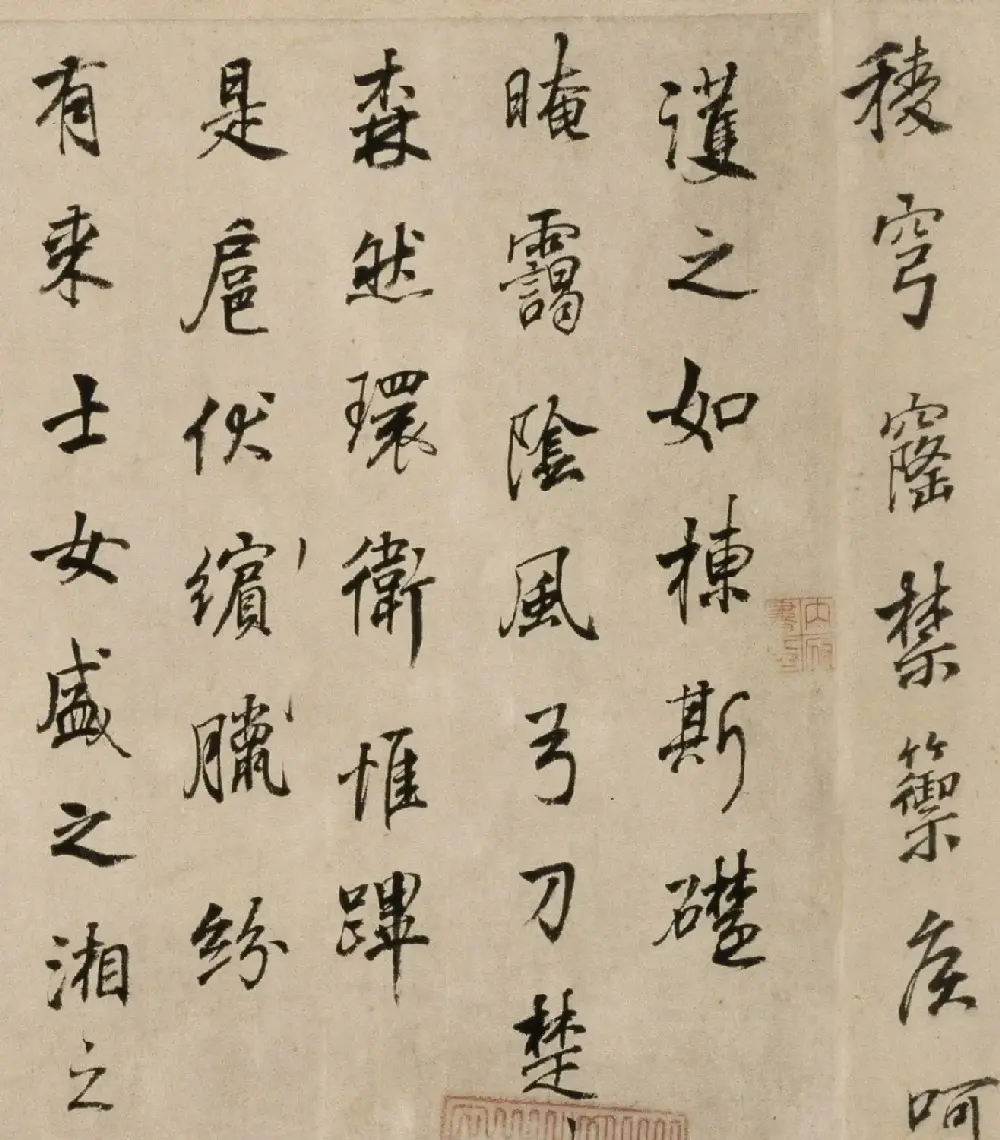 稜穹窿禁籞矦呵
護之如棟斯礎
晻靄陰風弓刀楚
森然環衛惟蹕
是扈伏繽臘紛
有來士女盛之湘之